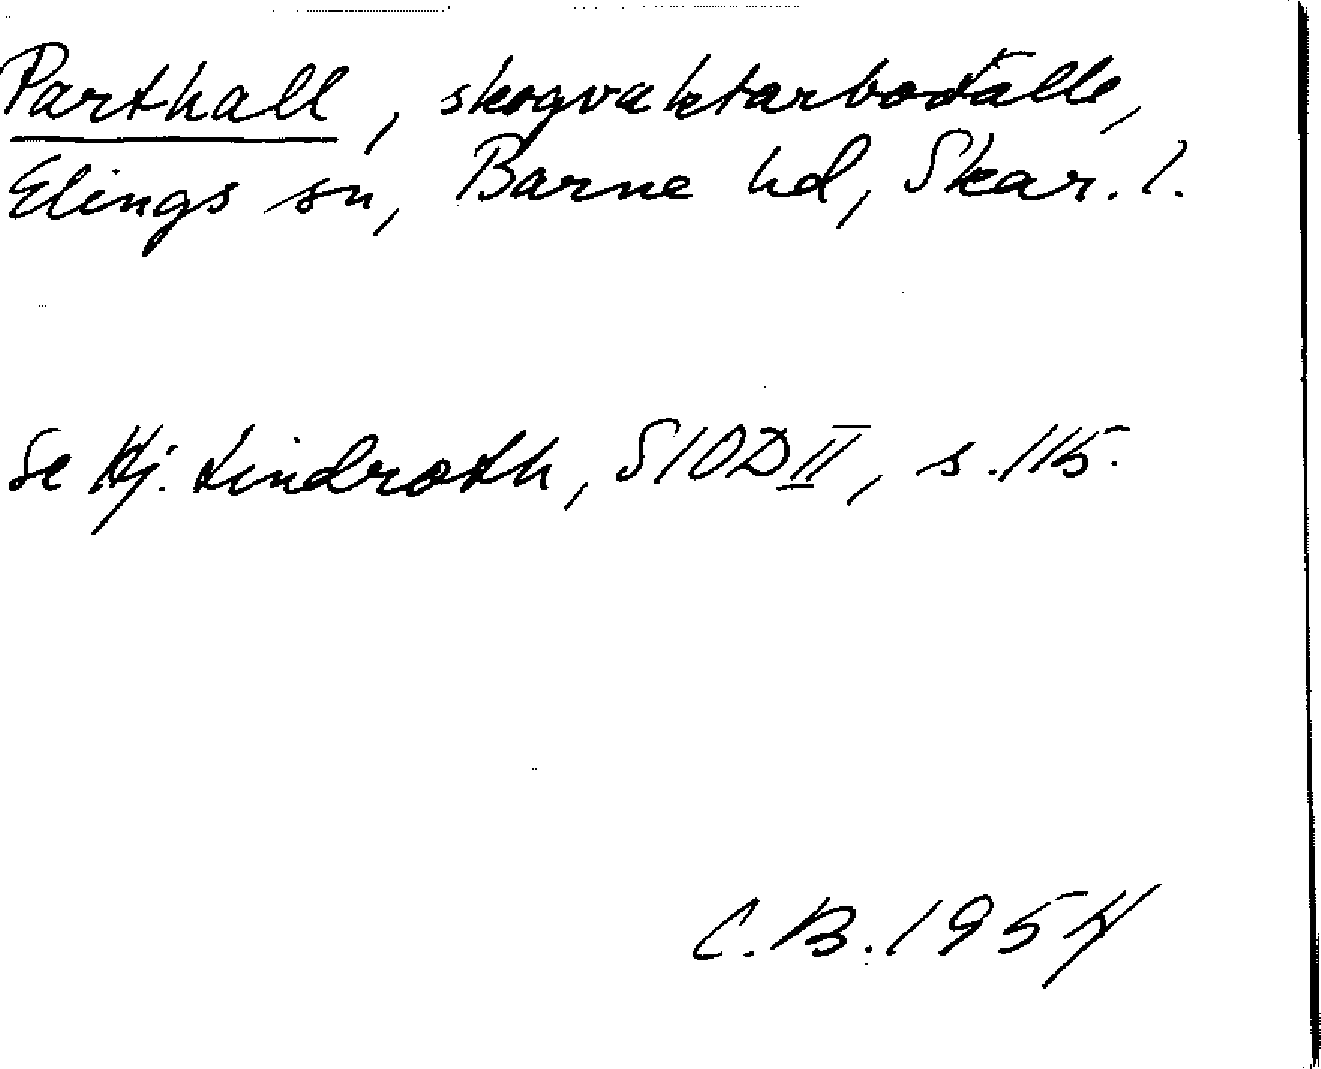 Parthall, skogvaktarboställe,
Elings sn, Barne hd, Skar. l.
Se Hj. Lindroth, SIOD II, s. 115.
C. B. 1954